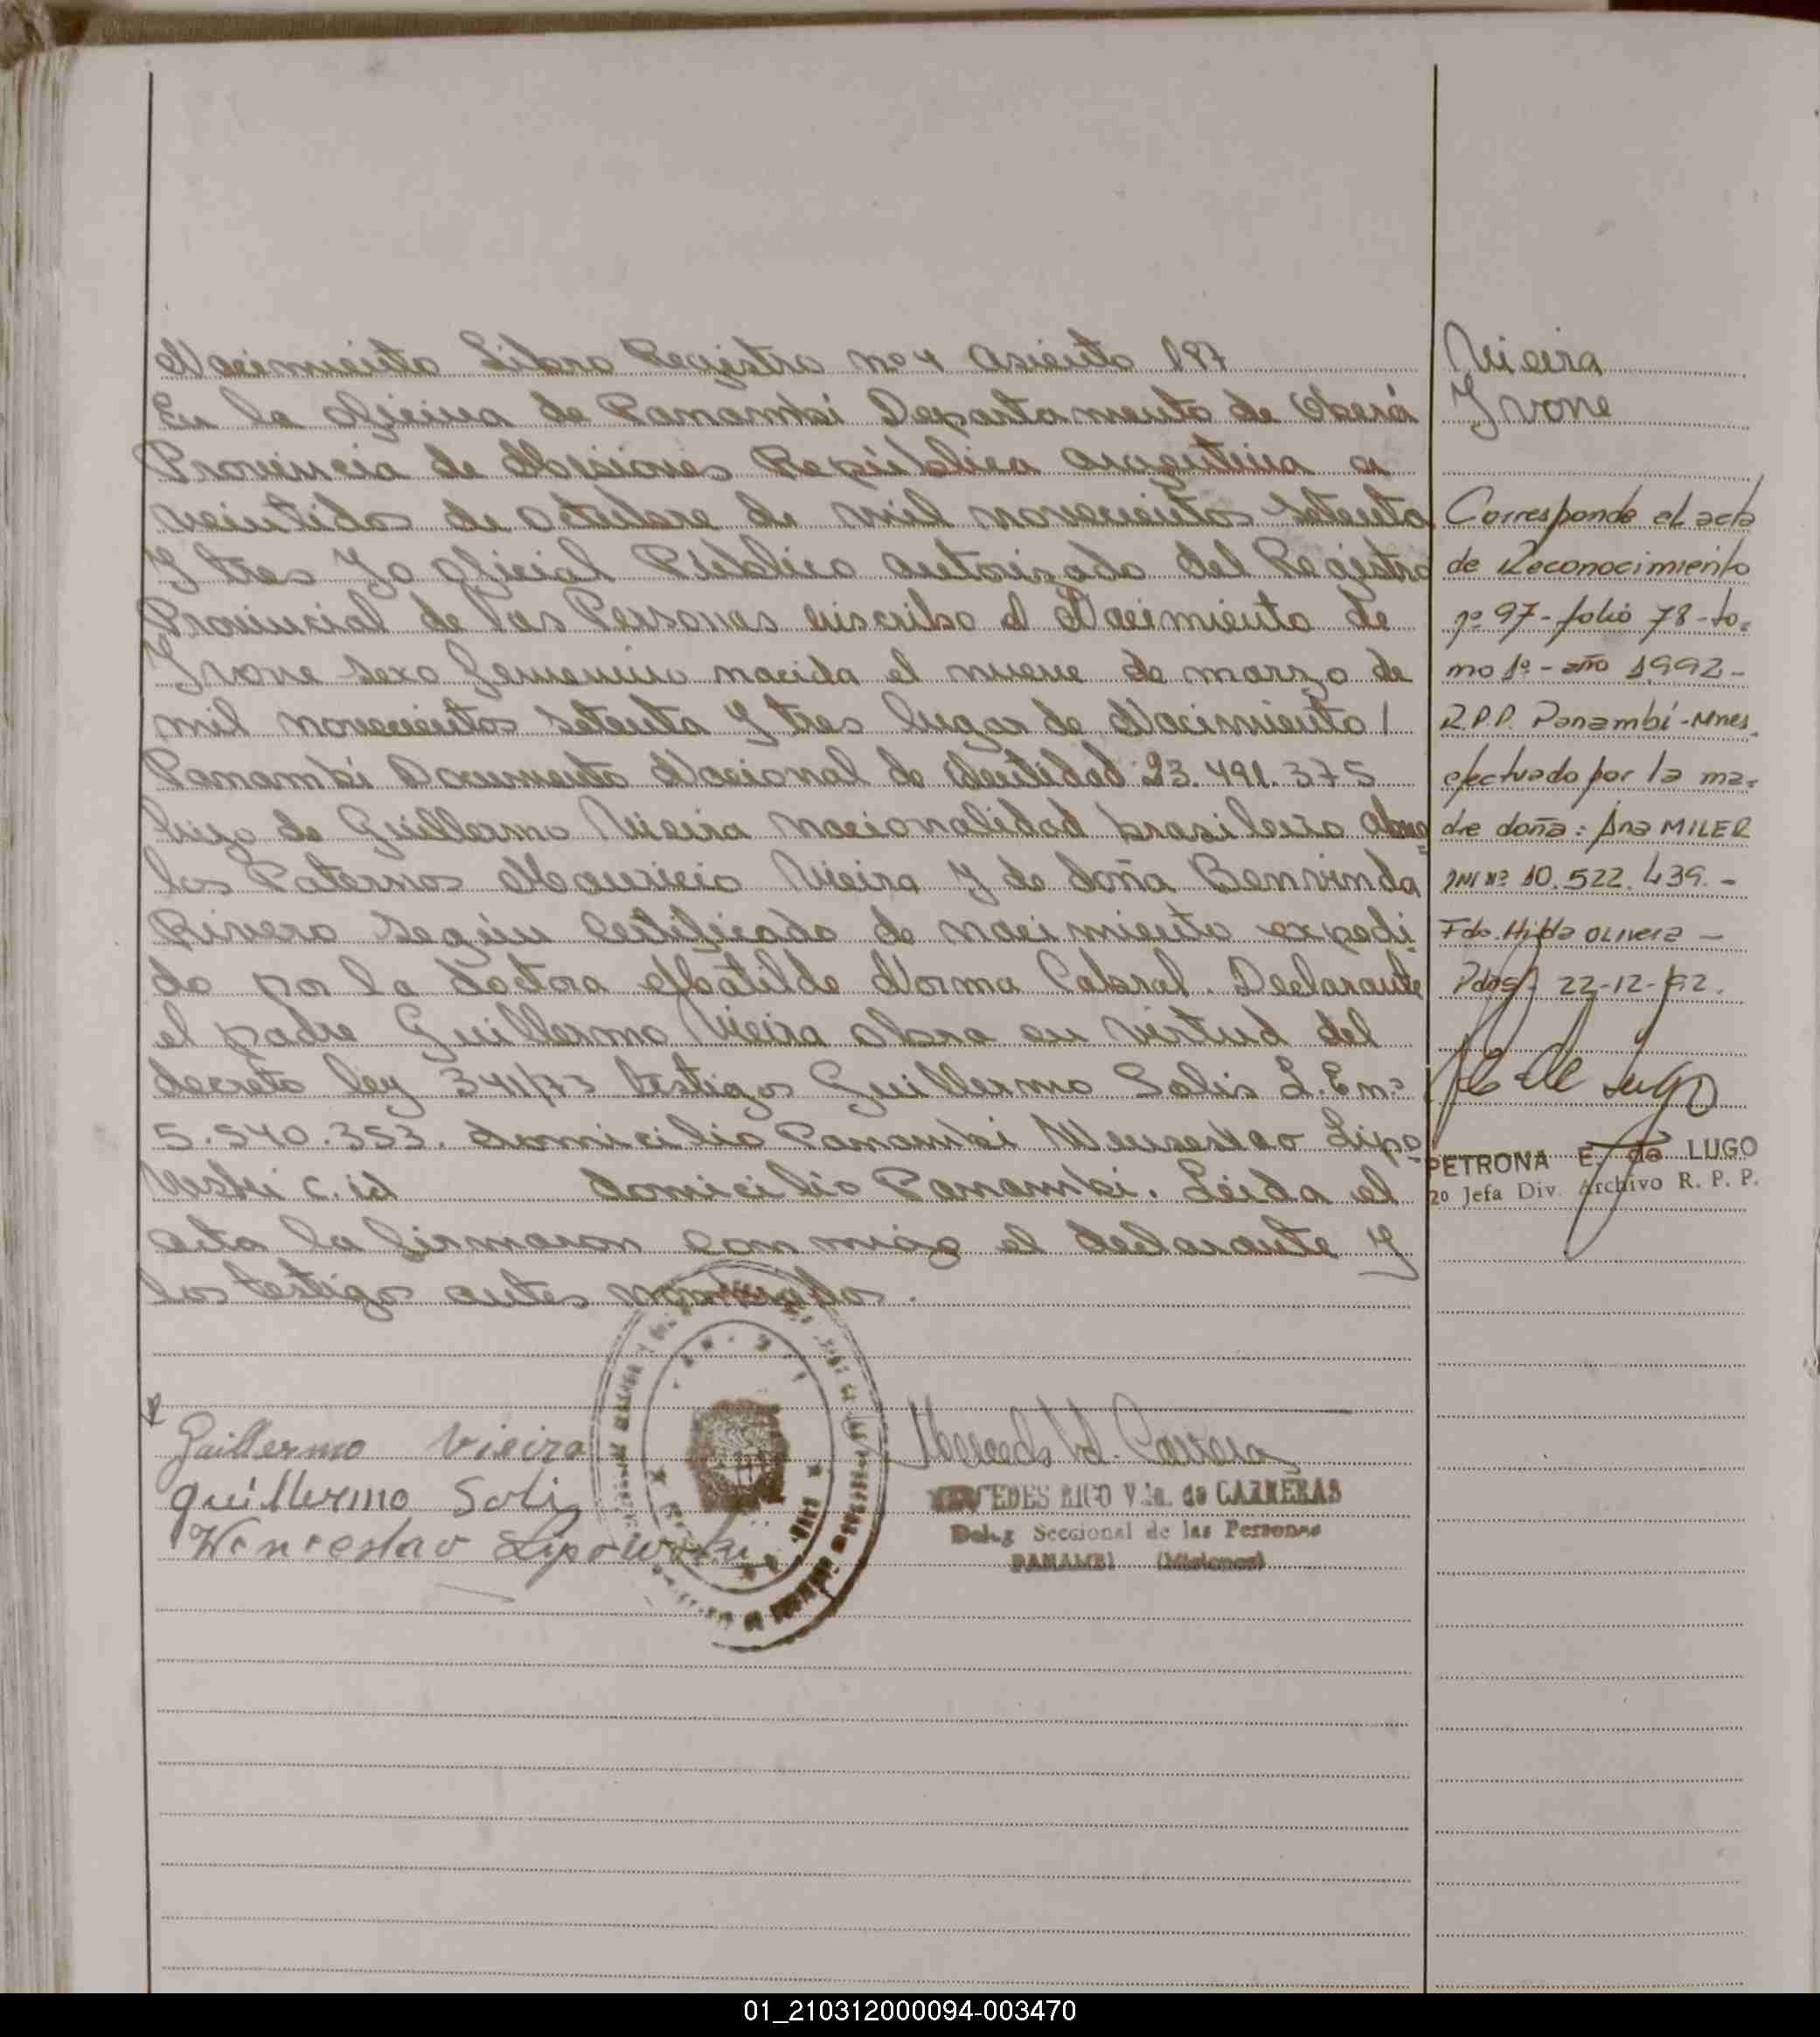 Nacimiento Libro Registro nº 4 asiento 187
En la oficina de Panambi Departamento de Oberá
Provincia de Misiones República argentina a
veintidos de octubre de mil novecientos setenta
y tres Yo oficial Público autorizado del Registro
Provincial de las Personas inscribo el Nacimiento de
Ivone sexo femenino nacida el nueve de marzo de
mil novecientos setenta y tres lugar de Nacimiento /
Panambi Documento Nacional de Identidad 23.491.375
hijo de Guillermo Vieira nacionalidad brasilero abue
los Paternos Mauricio Vieira y de doña Benvinda
Rivero según certificado de nacimiento expedi
do por la doctora Matilde Norma Cabral. Declarante
el padre Guillermo Vieira obra en virtud del
decreto ley 341/73 testigos Guillermo Solis L.E nº
5.540.353. domicilio Panambi Wenseslao Lipo
weski c. id domicilio Panambi. Leida el
acta la firmaron conmigo el declarante y
los testigos antes nombrados.
Guillermo Vieira
guillermo Solis
Wenceslao Lipowski
MERCEDES RICO Vda. de CARRERAS
Deleg Seccional de las Personas
PANAMBI (Misiones)
Vieira
Ivone
Corresponde el acta
de Reconocimiento
nº 97-folio 78-to=
mo 1º-año 1992-
R.P.P. Panambí-Mnes.
efectuado por la ma=
dre doña: Ana MILER
DNI Nº 10.522.439.-
Fdo. Hilda OLIVERA-
Pdas, 22-12-92.
PETRONA E. de LUGO
2º Jefa Div. Archivo R. P. P.
01_210312000094-003470